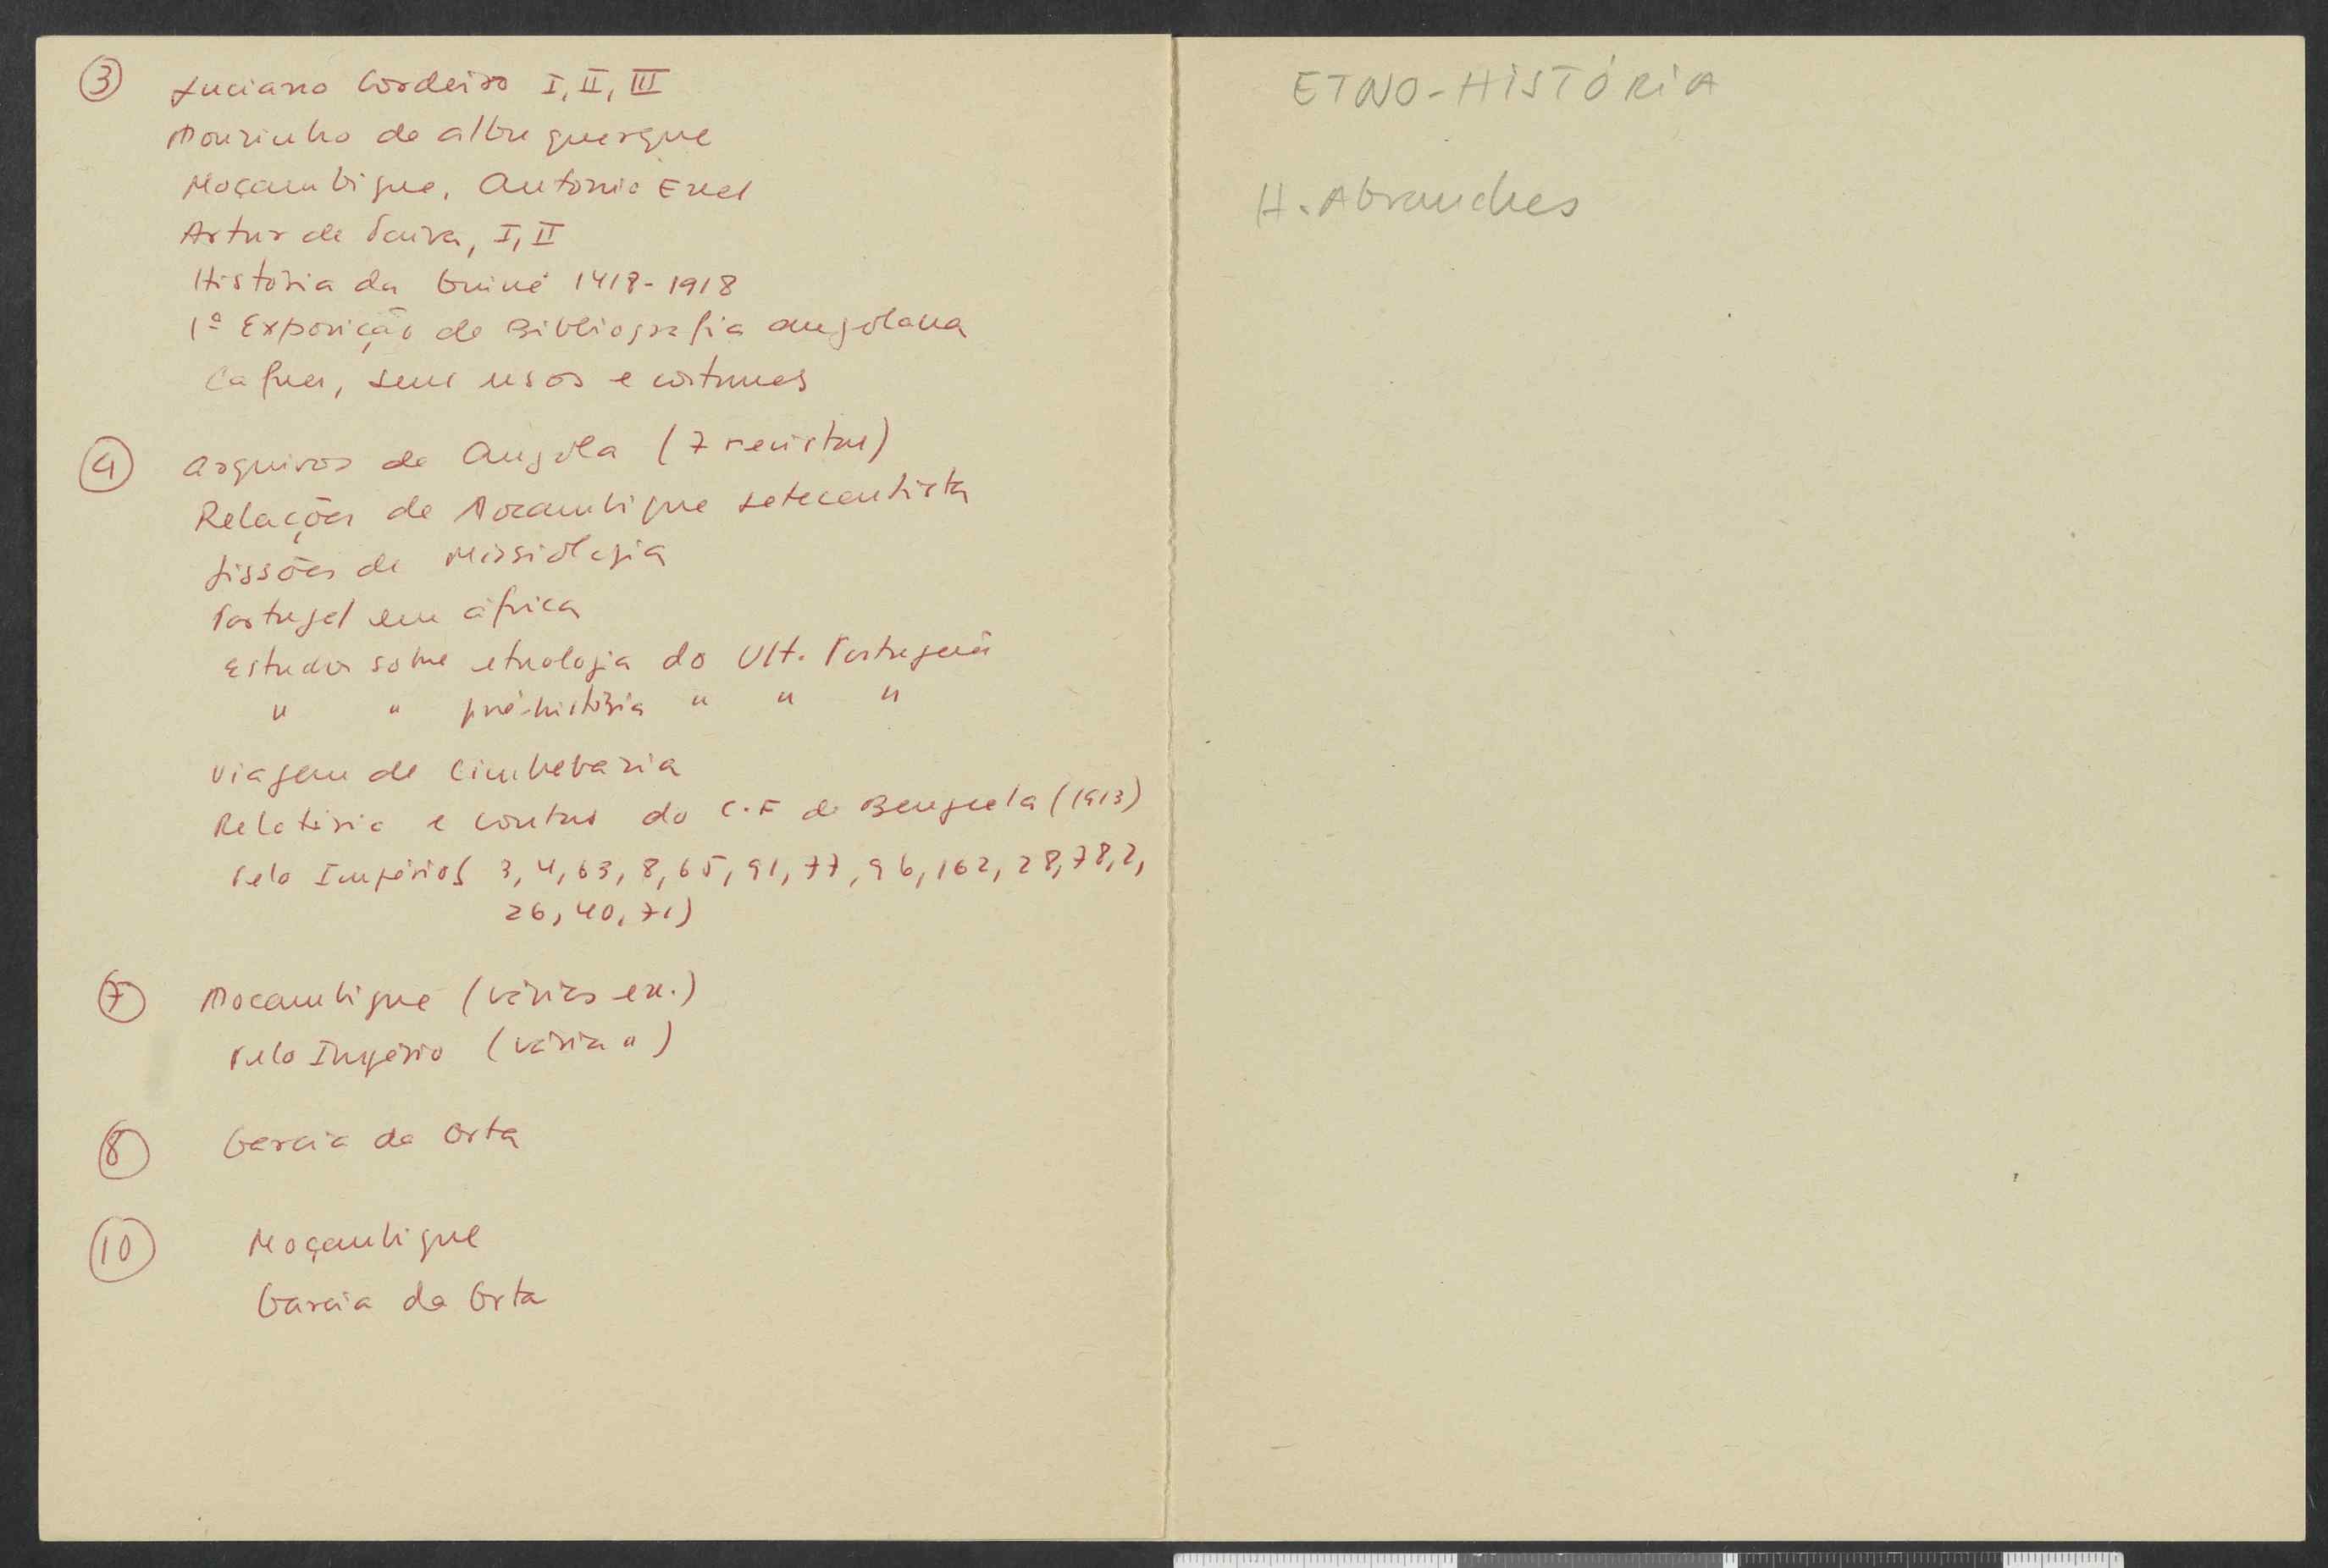 ③ Luciano Cordeiro I, II, III
Mouzinho de Albuquerque
Moçambique, Antonio Enes
Artur de Paiva, I, II
História da Guiné 1418-1918
1ª Exposição de Bibliografia angolana
Cafres, seus usos e costumes
④ Arquivos de Angola (7 revistas)
Relações de Mocambique setecentista
Lissões de Missiologia
Portugal em África
Estudos sobre etnologia do Ult. Português
" " pré-história " " "
Viagem de Cimbebasia
Relatório e contas do C.F de Benguela (1913)
Pelo Império( 3, 4, 63, 8, 65, 91, 77, 96, 102, 28, 78, 2,
26, 40, 71)
⑦ Mocambique (vários ex.)
Pelo Império (vários ")
⑧ Garcia da Orta
⑩ Moçambique
Garcia da Orta
ETNO-HISTÓRIA
H. Abranches